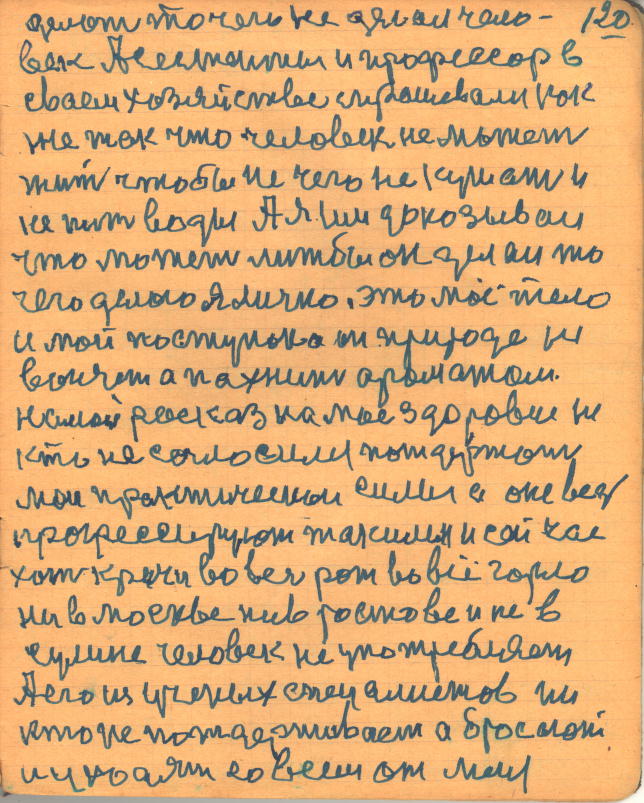 делают то чего не делал чело- 120
век А ассистенты и профессор в
своем хозяйстве спрашевали как
же так что человек не может
жит чтобы не чего не кушат и
не пит воды А я им доказывал
что может литбы он делал то
чего делаю я лично. это моё тело
и мой поступок а от природе не
воняет а пахнит ароматом.
на мой расказ на моё здоровие ни
кто не согласился потдержат
мои практически силы а оне вед
прогрессируют такими и сей час
хот кричи во вес рот во всё горло
ни в москве ни в ростове и не в
сулине человек не употребляет
А его из ученых специалистов ни
кто не потдерживает а бросают
и уходят со всем от мня